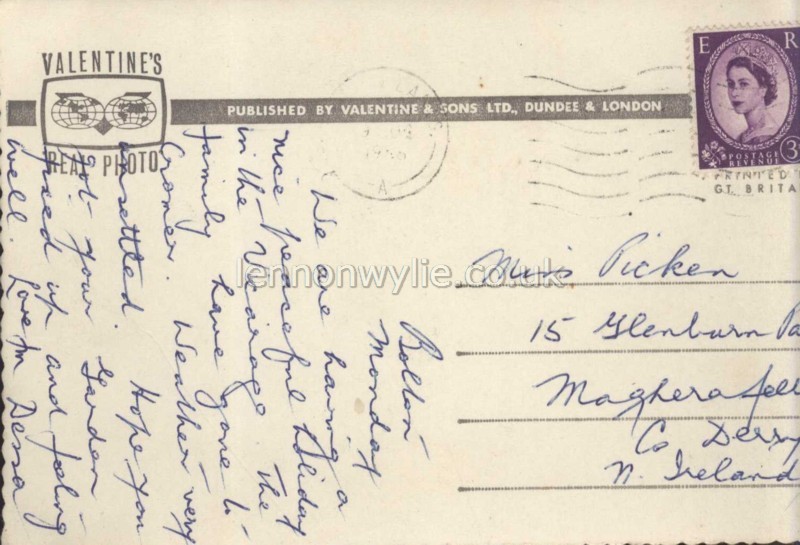 VALENTINE'S
REAL PHOTO
PUBLISHED BY VALENTINE & SONS LTD., DUNDEE & LONDON
E R
POSTAGE
REVENUE
3
PRINTED
GT. BRITA
A
lennonwylie.co.uk
Bolton
Monday
We are having a
nice peaceful holiday
in the Vicarage. The
family have gone to
Cromer. Weather very
unsettled. Hope you
got your garden
fixed up and feeling
well. Love Dessa
Miss Picken
15 Glenburn Pa
Magherafel
Co Derry
N. Ireland